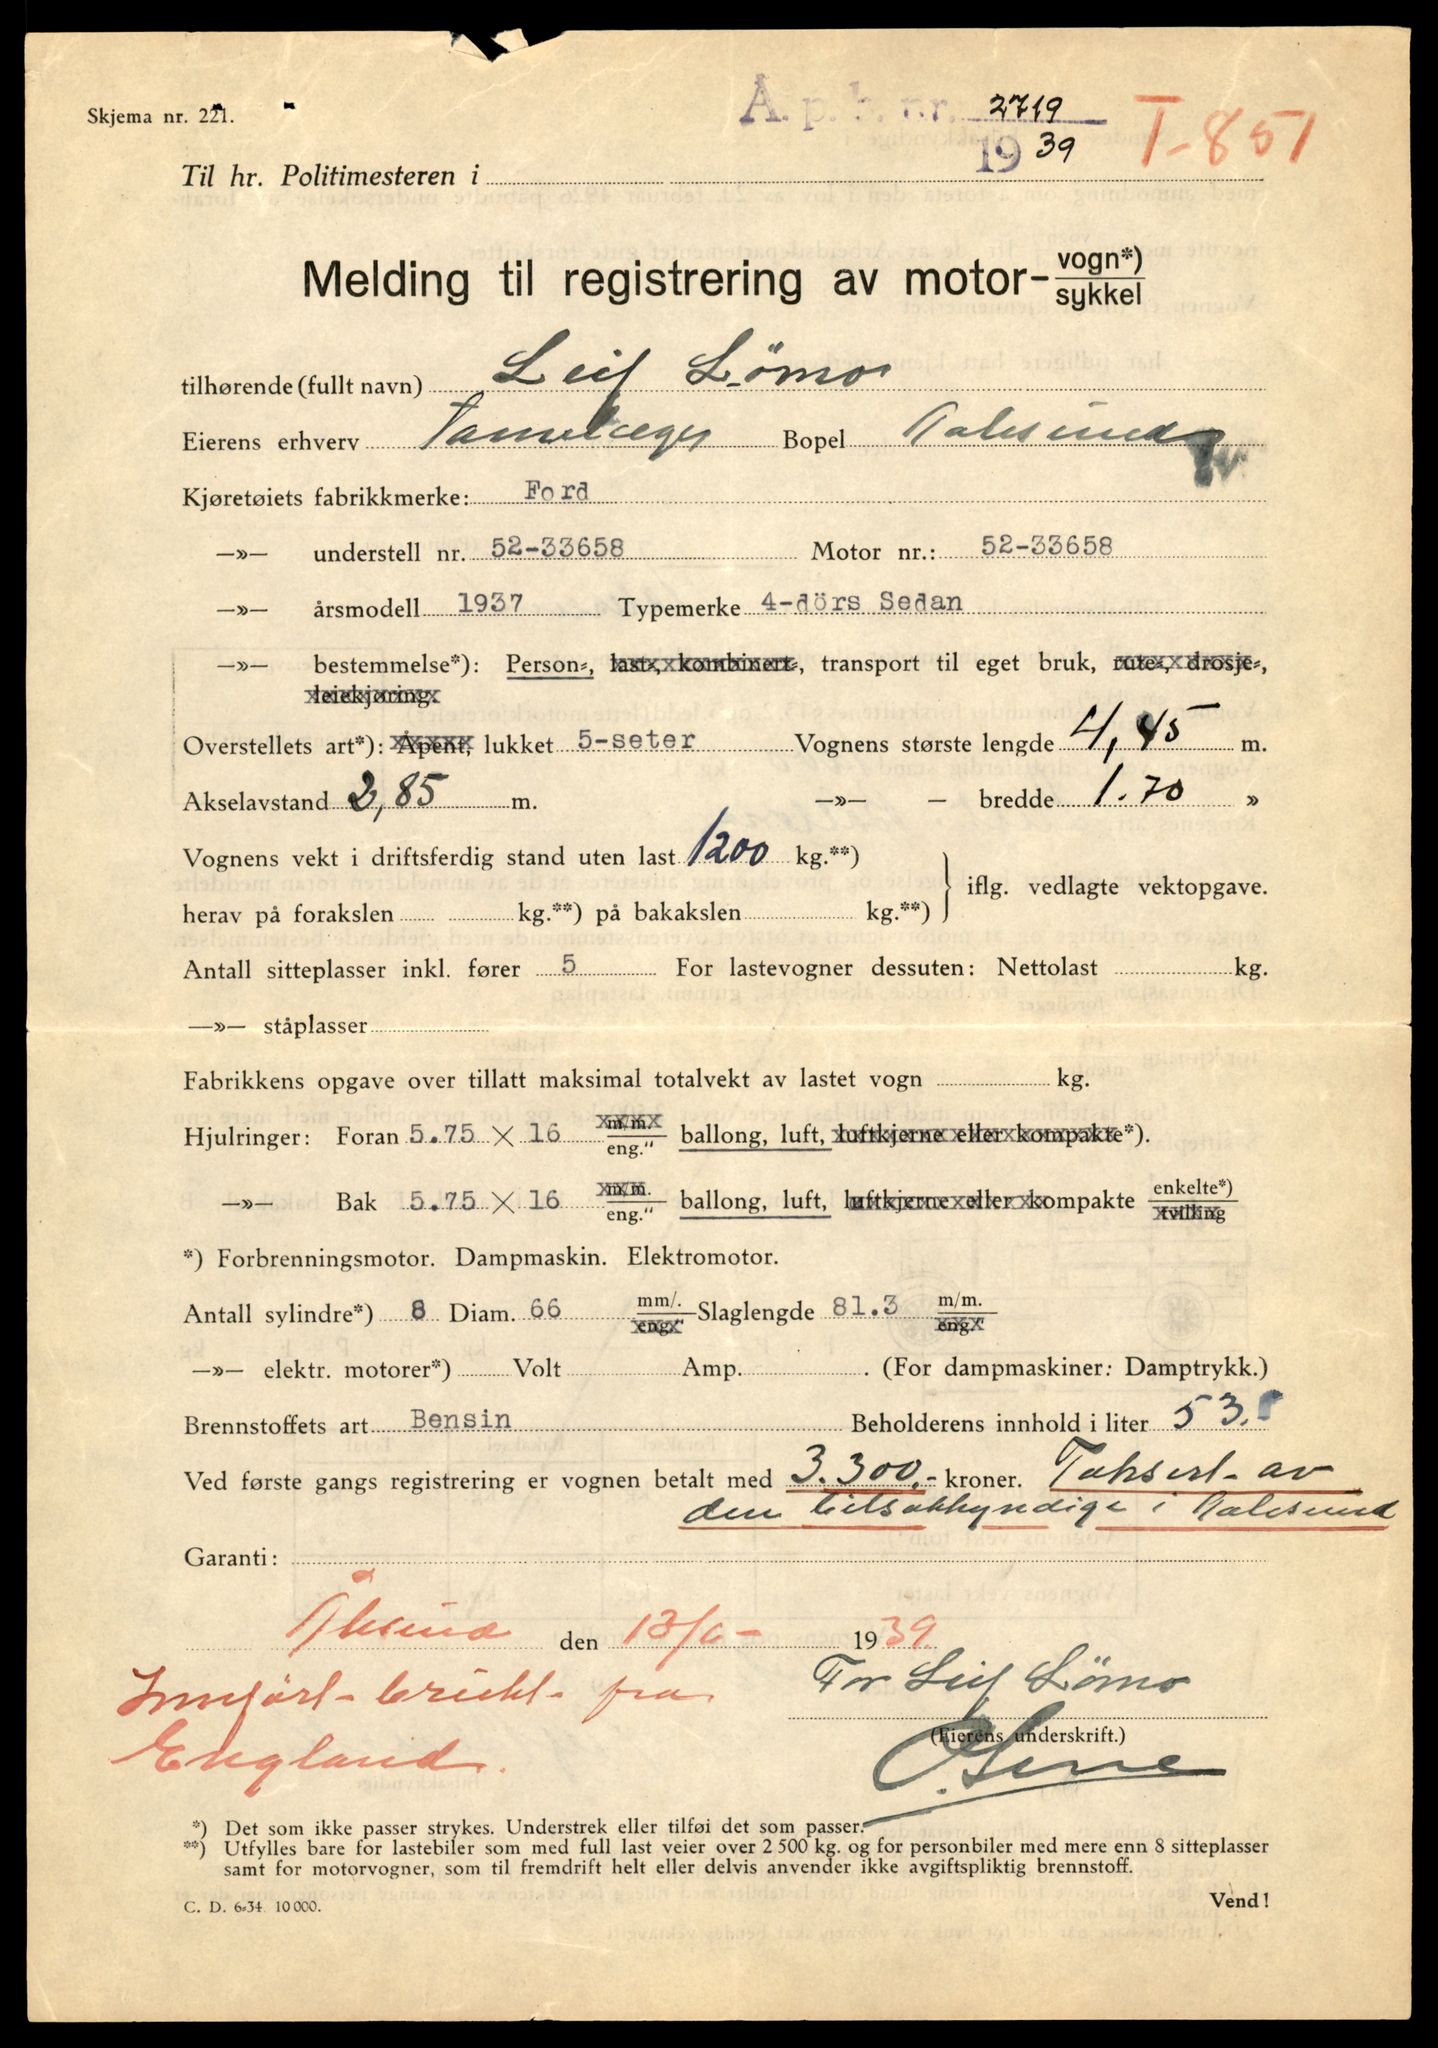 Skjema nr. 221.
A. p. k. nr. 2719
1939
T-851
Til hr. Politimesteren i
Melding til registrering av motor- vogn*) / sykkel
tilhørende (fullt navn) Leif Lömo
Eierens erhverv Tannlæge Bopel Aalesund
Kjøretøiets fabrikkmerke: Ford
—»— understell nr. 52-33658 Motor nr.: 52-33658
—»— årsmodell 1937 Typemerke 4-dörs Sedan
—»— bestemmelse*): Person-, last-, kombinert-, transport til eget bruk, rute-, drosje-,
leiekjøring.
Overstellets art*): Åpent, lukket 5-seter Vognens største lengde 4,45 m.
Akselavstand 2,85 m. —»— — bredde 1.70 »
Vognens vekt i driftsferdig stand uten last 1200 kg.**)
iflg. vedlagte vektopgave.
herav på forakslen kg.**) på bakakslen kg.**)
Antall sitteplasser inkl. fører 5 For lastevogner dessuten: Nettolast kg.
—»— ståplasser
Fabrikkens opgave over tillatt maksimal totalvekt av lastet vogn kg.
Hjulringer: Foran 5.75 × 16 m/m. / eng." ballong, luft, luftkjerne eller kompakte*).
—»— Bak 5.75 × 16 m/m. / eng." ballong, luft, luftkjerne eller kompakte enkelte*) / tvilling
*) Forbrenningsmotor. Dampmaskin. Elektromotor.
Antall sylindre*) 8 Diam. 66 mm/. / eng." Slaglengde 81.3 m/m. / eng."
—»— elektr. motorer*) Volt Amp. . (For dampmaskiner: Damptrykk.)
Brennstoffets art Bensin Beholderens innhold i liter 53.
Ved første gangs registrering er vognen betalt med 3.300.- kroner. Taksert av
den bilsakkyndige i Aalesund
Garanti:
Ålesund den 13/6- 1939.
Innfört brukt fra
England.
For Leif Lömo
(Eierens underskrift.)
*) Det som ikke passer strykes. Understrek eller tilføi det som passer.
**) Utfylles bare for lastebiler som med full last veier over 2 500 kg. og for personbiler med mere enn 8 sitteplasser
samt for motorvogner, som til fremdrift helt eller delvis anvender ikke avgiftspliktig brennstoff.
C. D. 6-34. 10 000.
Vend!